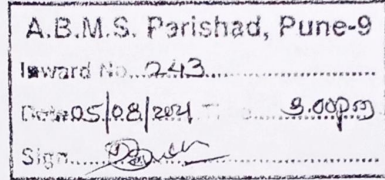 A.B.M.S. Parishad, Pune-9
Inward No. 243
Date 05/08/2021 3.00pm
Sign